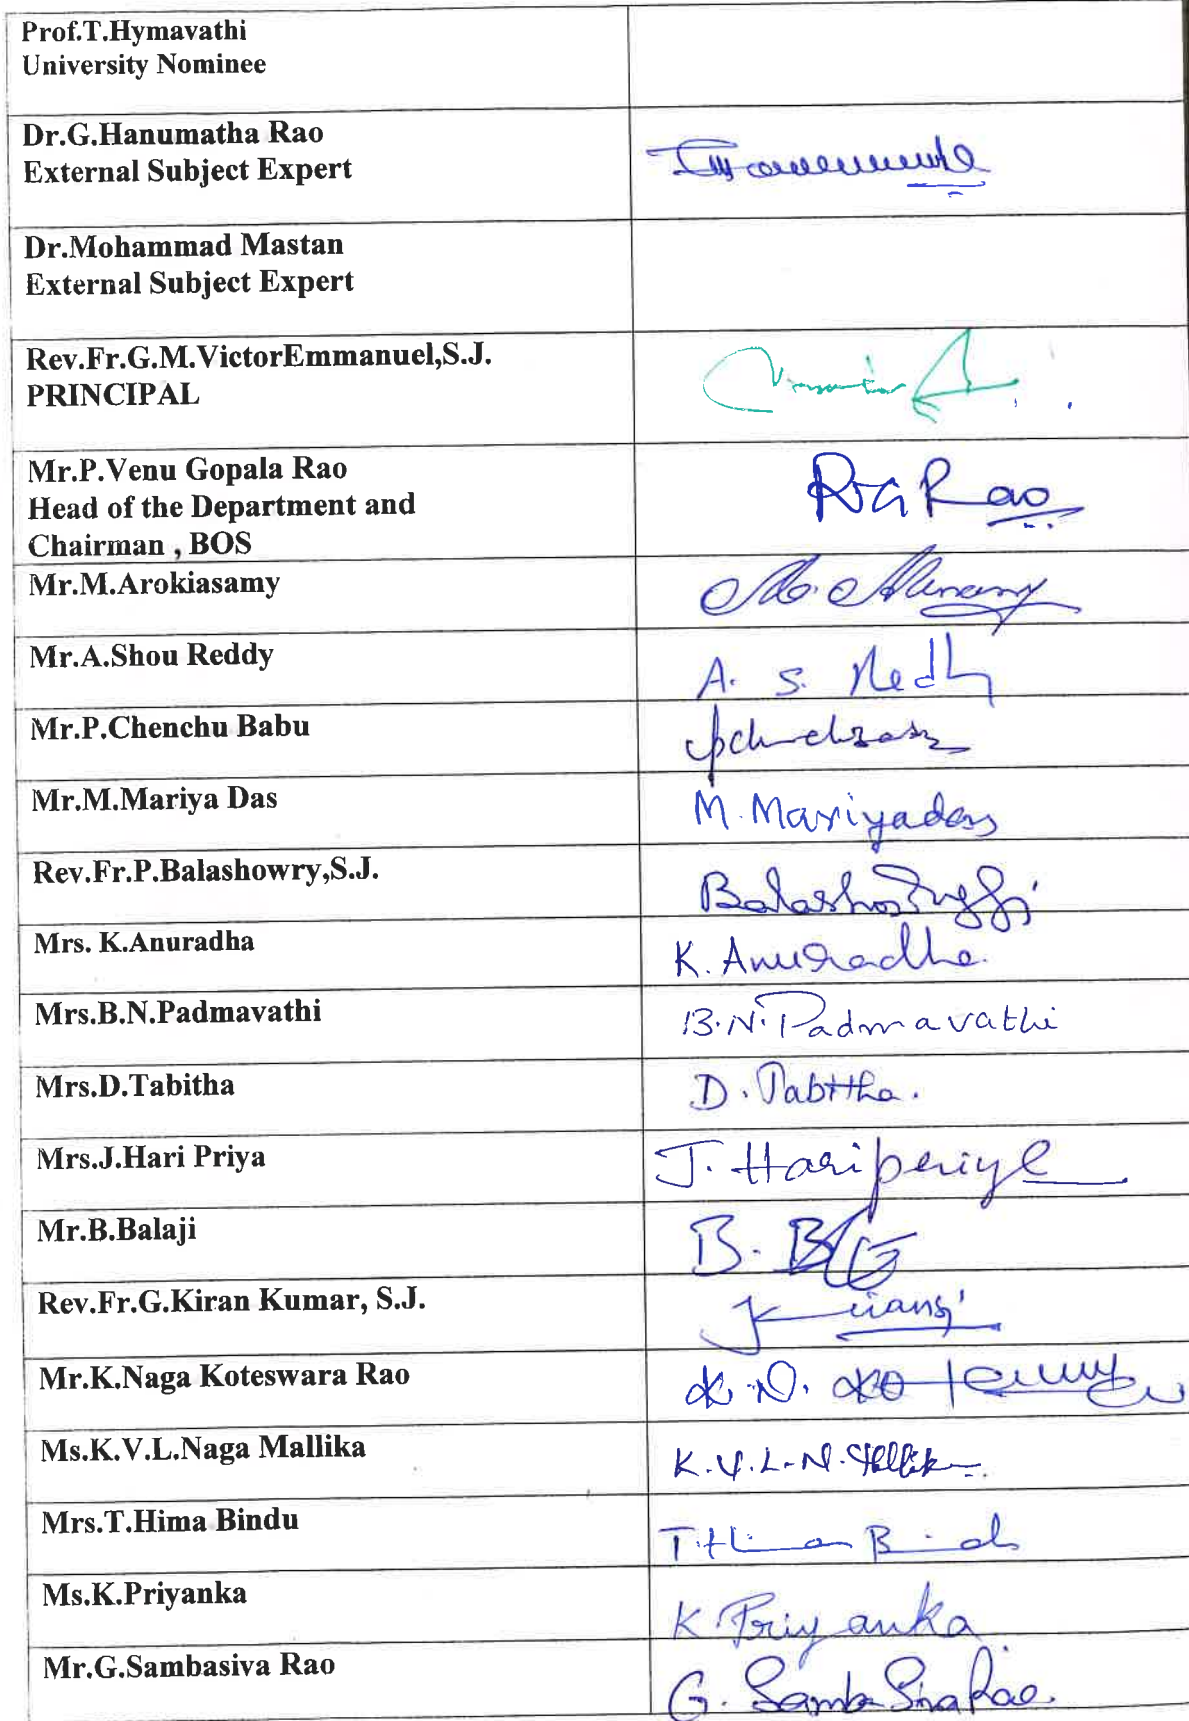 Prof.T.Hymavathi
University Nominee
Dr.G.Hanumatha Rao
External Subject Expert
Dr.Mohammad Mastan
External Subject Expert
Rev.Fr.G.M.VictorEmmanuel,S.J.
PRINCIPAL
Mr.P.Venu Gopala Rao
Head of the Department and
Chairman , BOS
Rao
Mr.M.Arokiasamy
Mr.A.Shou Reddy
A. S. Redd
Mr.P.Chenchu Babu
Mr.M.Mariya Das
M. Mariyadas
Rev.Fr.P.Balashowry,S.J.
Mrs. K.Anuradha
K. Anuradha.
Mrs.B.N.Padmavathi
B.N.Padmavathi
Mrs.D.Tabitha
D. Tabitha.
Mrs.J.Hari Priya
J. Haripriya
Mr.B.Balaji
B.
Rev.Fr.G.Kiran Kumar, S.J.
Mr.K.Naga Koteswara Rao
K.N.
Ms.K.V.L.Naga Mallika
K.V.L.N.Mallika
Mrs.T.Hima Bindu
T.Hima Bindu
Ms.K.Priyanka
K.Priyanka
Mr.G.Sambasiva Rao
G. SambaSivaRao.